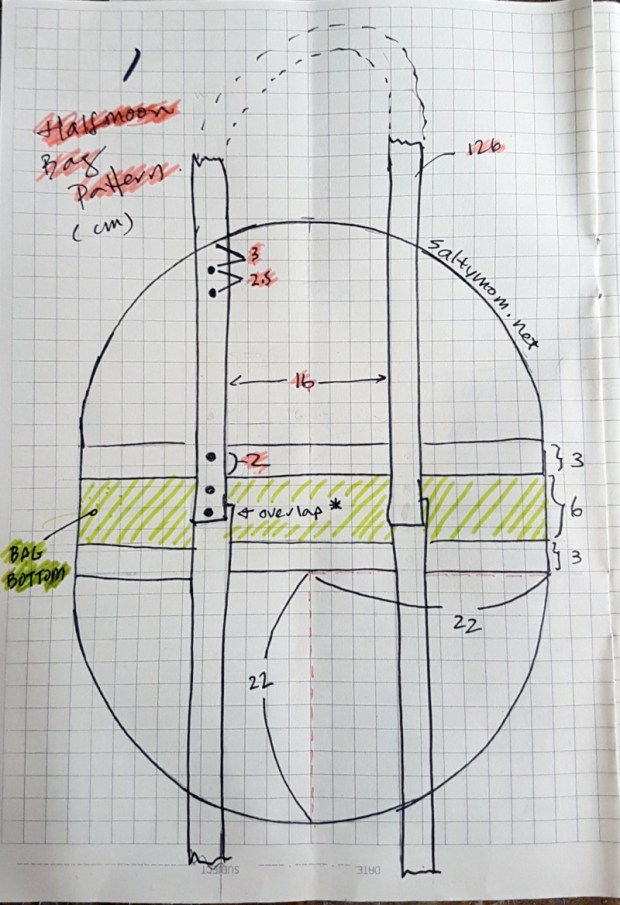 Halfmoon
Bag
Pattern
(cm)
126
Saltymom.net
3
2.5
16
2
3
overlap *
6
BAG
BOTTOM
3
22
22
SUBJECT
DATE